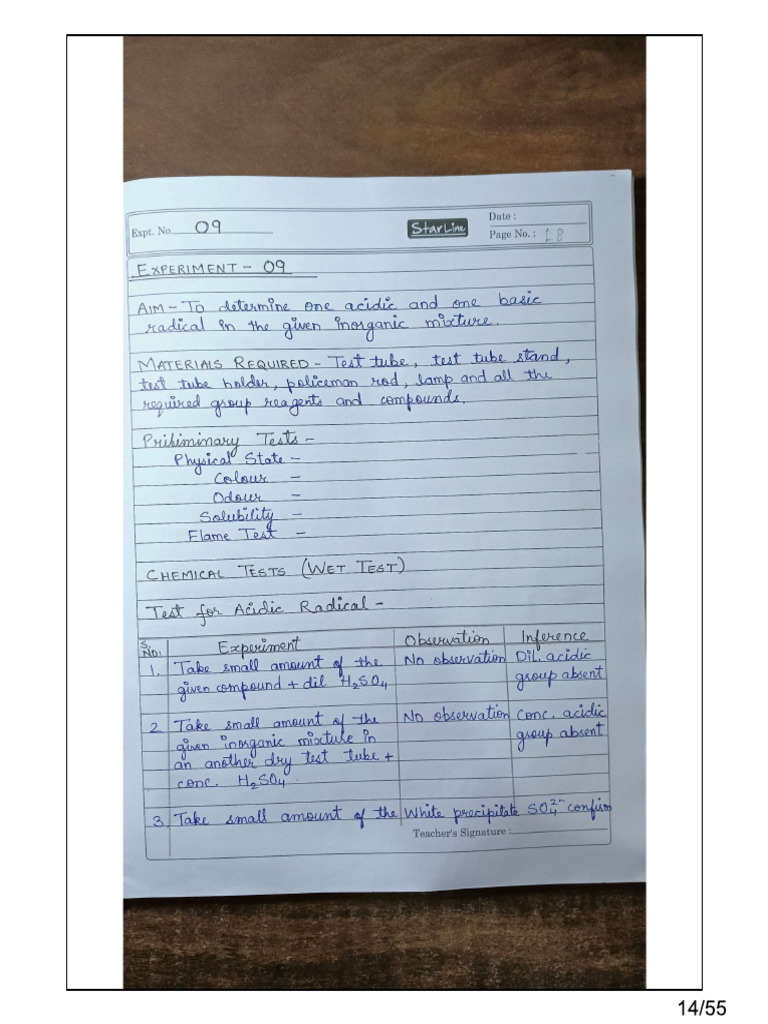 Date :
Expt. No. 09
StarLine
Page No. : 18
EXPERIMENT - 09
AIM - To determine one acidic and one basic
radical in the given inorganic mixture.
MATERIALS REQUIRED - Test tube, test tube stand,
test tube holder, policeman rod, lamp and all the
required group reagents and compounds.
Prilliminary Tests -
Physical State -
Colour -
Odour -
Solubility -
Flame Test -
CHEMICAL TESTS (WET TEST)
Test for Acidic Radical -
S. No. Experiment Observation Inference
1. Take small amount of the No observation Dil. acidic
given compound + dil H₂SO₄ group absent
2 Take small amount of the No observation Conc. acidic
given inorganic mixture in group absent
an another dry test tube +
conc. H₂SO₄.
3. Take small amount of the White precipitate SO₄²⁻ confirm
Teacher's Signature :
14/55